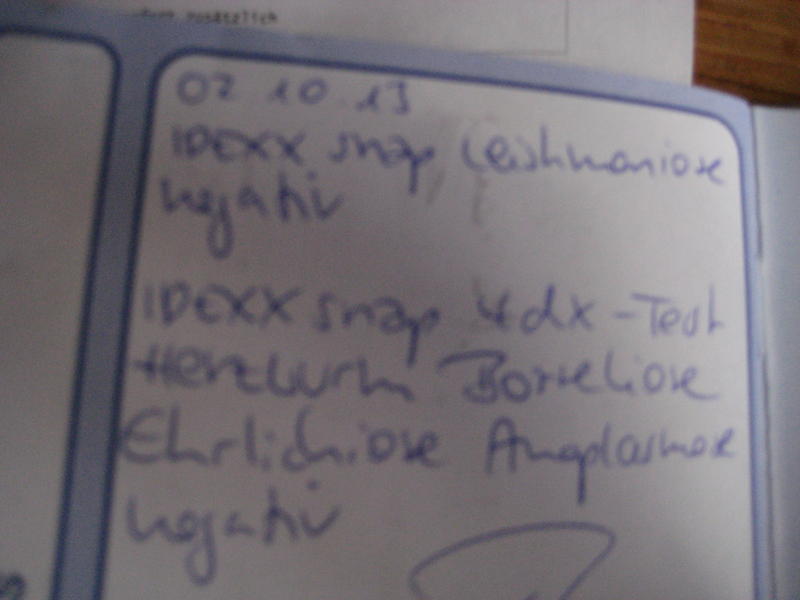 zusätzlich
02 10 13
IDEXX snap Leishmaniose
negativ
IDEXX snap 4dx-Test
Herzwurm Borreliose
Ehrlichiose Anaplasmose
negativ